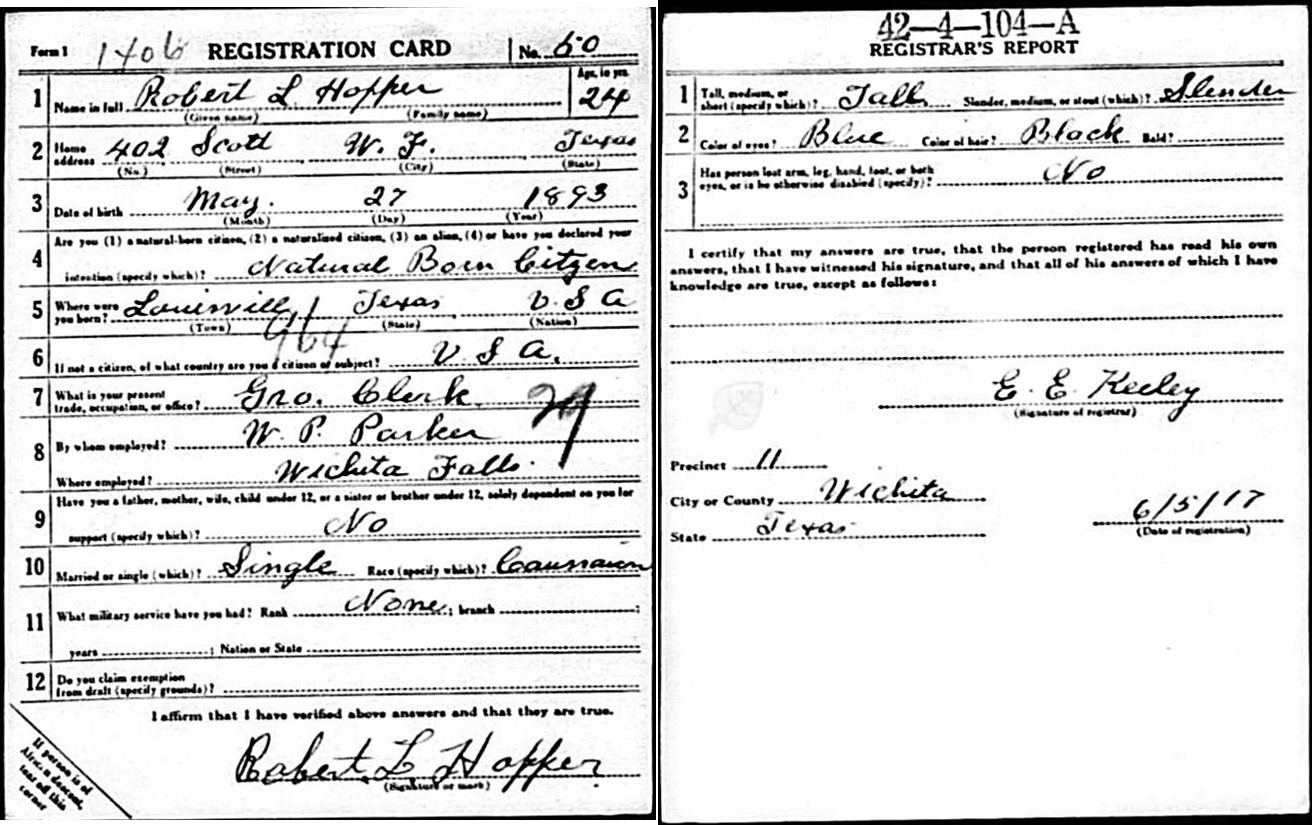 Form 1 1406 REGISTRATION CARD No. 50
1 Name in full Robert L Hopper Age, in yrs. 24
(Given name) (Family name)
2 Home address 402 Scott W. F. Texas
(No.) (Street) (City) (State)
3 Date of birth May. 27 1893
(Month) (Day) (Year)
4 Are you (1) a natural-born citizen, (2) a naturalized citizen, (3) an alien, (4) or have you declared your
intention (specify which)? Natural Born Citzen
5 Where were you born? Louisvill Texas U. S A
(Town) (State) (Nation)
964
6 If not a citizen, of what country are you a citizen or subject? U S A.
7 What is your present
trade, occupation, or office? Gro. Clerk 29
8 By whom employed? W. P. Parker
Where employed? Wichita Falls.
9 Have you a father, mother, wife, child under 12, or a sister or brother under 12, solely dependent on you for
support (specify which)? No
10 Married or single (which)? Single Race (specify which)?
11 What military service have you had? Rank None ; branch ;
years ; Nation or State
12 Do you claim exemption
from draft (specify grounds)?
I affirm that I have verified above answers and that they are true.
Robert L Hopper
(Signature or mark)
If person is of
African descent,
tear off this
corner
42—4—104—A
REGISTRAR'S REPORT
1 Tall, medium, or
short (specify which)? Tall Slender, medium, or stout (which)? Slender
2 Color of eyes? Blue Color of hair? Black Bald?
3 Has person lost arm, leg, hand, foot, or both
eyes, or is he otherwise disabled (specify)? No
I certify that my answers are true, that the person registered has read his own
answers, that I have witnessed his signature, and that all of his answers of which I have
knowledge are true, except as follows:
E. E. Keeley
(Signature of registrar)
Precinct 11
City or County Wichita
State Texas
6/5/17
(Date of registration)